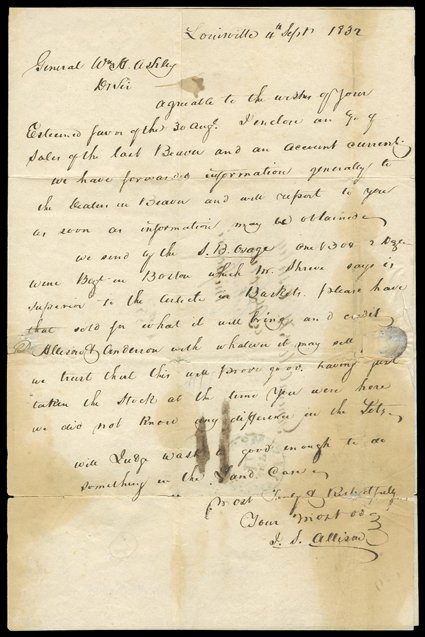 Louisville 4th Sept 1832
General Wm H. Ashley
Dr Sir
agreable to the wishes of your
Esteemed favor of the 30 Augt. I enclose an a/c of
Sales of the last Beaver and an account current.
we have forwarded information generally to
the dealers in Beaver and will report to you
as soon as information may be obtained
we send by the S. B. Osage one Box 2 Doz
wine Bogt in Boston which Mr. Shreve says is
superior to the article in Baskets. Please have
that sold for what it will bring and credit
Allison & Anderson with whatever it may sell
we trust that this will prove good. having just
taken the Stock at the time you were here
we did not know any difference in the Lots
will Judge Wash good enough to do
something in the Land Case
Most Truly & Respectfully
Your most ob
J. S. Allison